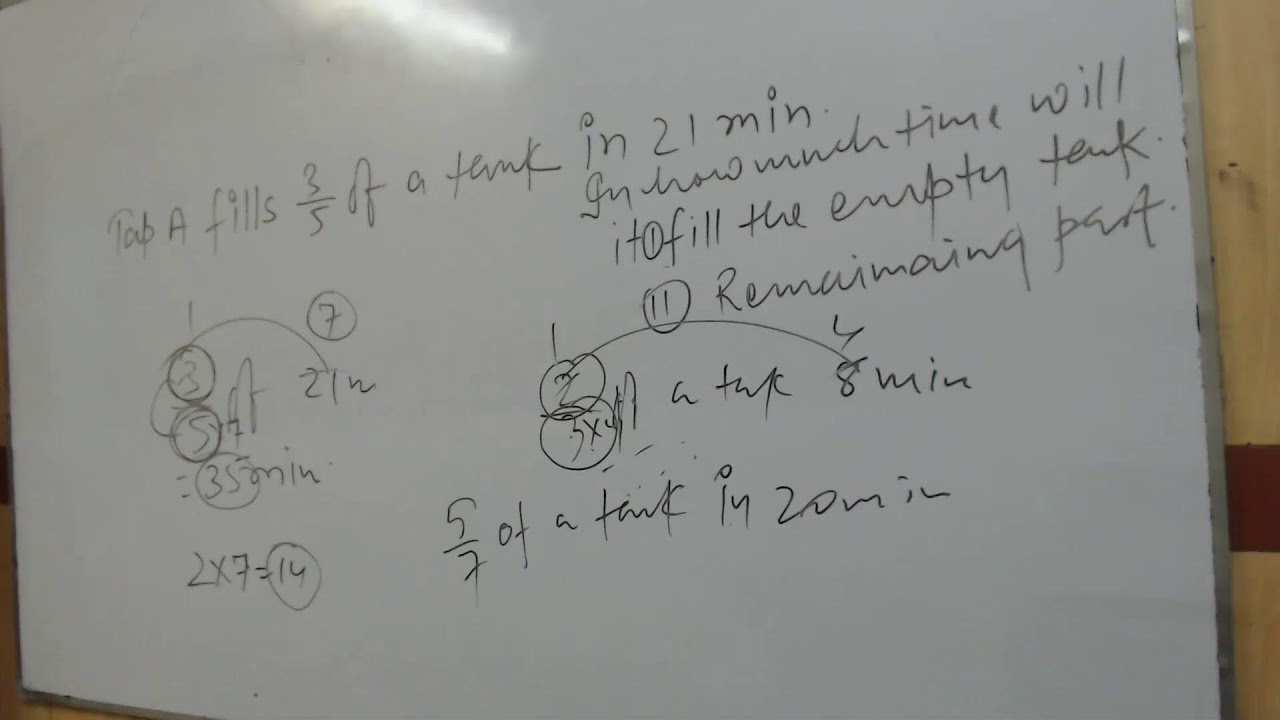 Tap A fills 3/5 of a tank in 21 min.
In how much time will
it ① fill the empty tank.
⑪ Remaimaining part.
1 7
3 of 21m
5x7
= 35 min
2x7=14
1 4
2 of a tak 8 min
5x4
5/7 of a tank in 20 min